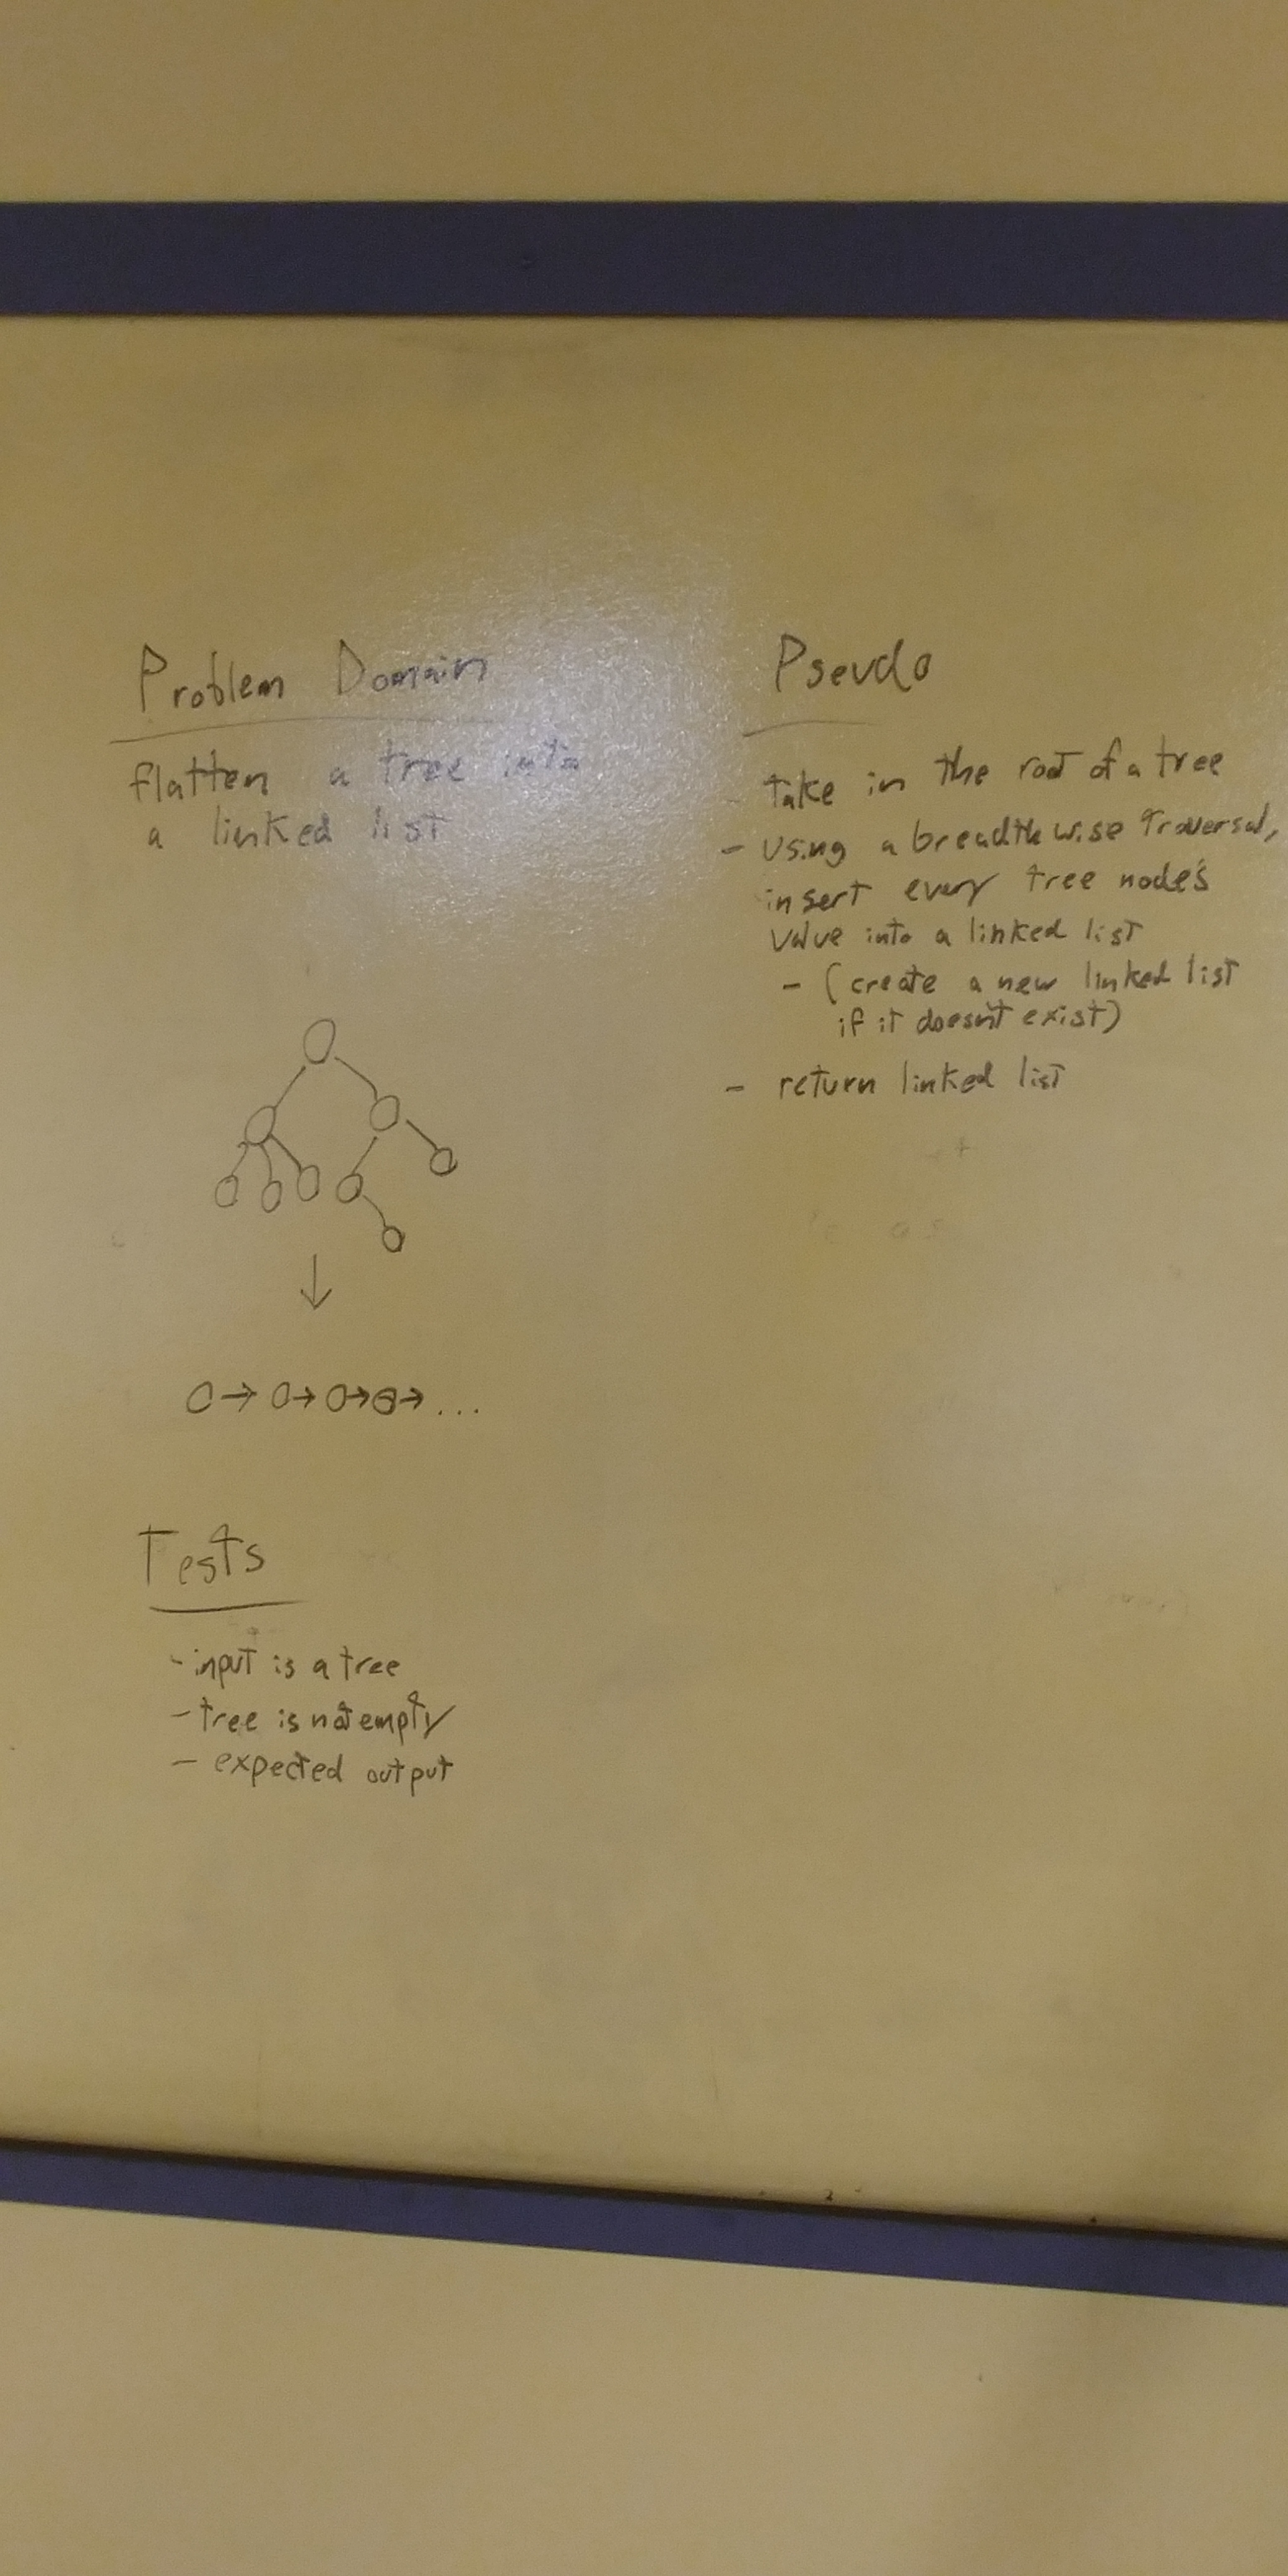 Problem Domain
flatten a tree into
a linked list
Tests
-input is a tree
-tree is not empty
- expected output
Pseudo
- take in the root of a tree
- Using a breadth wise traversal,
insert every tree node's
value into a linked list
- (create a new linked list
if it doesn't exist)
- return linked list